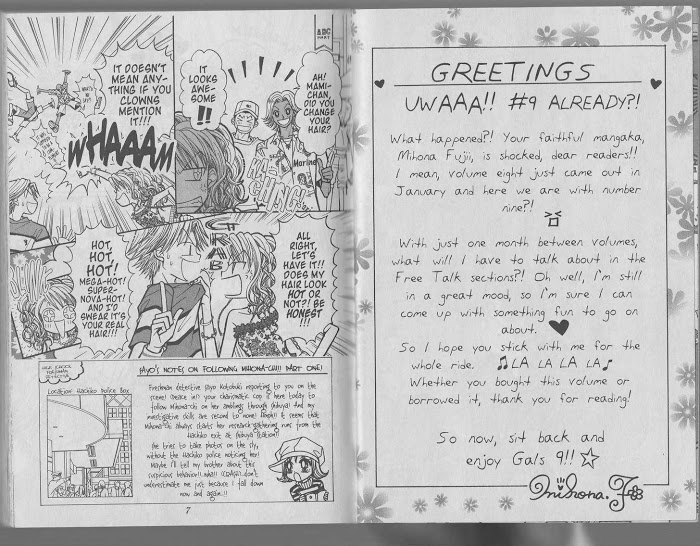 ABC
MART
AH!
MAMI-
CHAN,
DID YOU
CHANGE
YOUR
HAIR?
IT
LOOKS
AWE-
SOME
!!
IT DOESN'T
MEAN ANY-
THING IF YOU
CLOWNS
MENTION
IT!!!
WHAAAM
Marine
ALL
RIGHT,
LET'S
HAVE IT!!
DOES MY
HAIR LOOK
HOT OR
NOT?! BE
HONEST
!!!
GRAB
HOT,
HOT,
HOT!
MEGA-HOT!
SUPER-
NOVA-HOT!
AND I'D
SWEAR IT'S
YOUR REAL
HAIR!!!
SAYO'S NOTES ON FOLLOWING MIHONA-CHI!! PART ONE!
Location: Hachiko Police Box
Freshman detective Sayo Kotobuki reporting to you on the
scene! Peace in!! Your charismatic cop is here today to
follow Mihona-chi on her amblings through Shibuya! And my
investigative skills are second to none! It seems that
Mihona-chi always starts her research-gathering runs from the
Hachiko exit at Shibuya Station!!
She tries to take photos on the sly,
without the Hachiko police noticing her!
Maybe I'll tell my brother about this
suspicious behavior!! Don't
underestimate me just because I fall down
now and again!!
7
GREETINGS
UWAAA!! #9 ALREADY?!
What happened?! Your faithful mangaka,
Mihona Fujii, is shocked, dear readers!!
I mean, volume eight just came out in
January and here we are with number
nine?!
With just one month between volumes,
what will I have to talk about in the
Free Talk sections?! Oh well, I'm still
in a great mood, so I'm sure I can
come up with something fun to go on
about. ♥
So I hope you stick with me for the
whole ride. ♫LA LA LA LA♪
Whether you bought this volume or
borrowed it, thank you for reading!
So now, sit back and
enjoy Gals 9!! ☆
Mihona. F